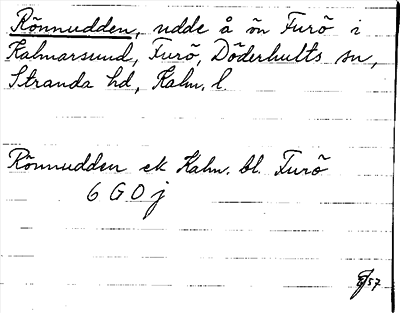 Rönnudden, udde å ön Furö i
Kalmarsund, Furö, Döderhults sn,
Stranda hd, Kalm. l.
Rönnudden ek Kalm. bl. Furö
6 G 0 j